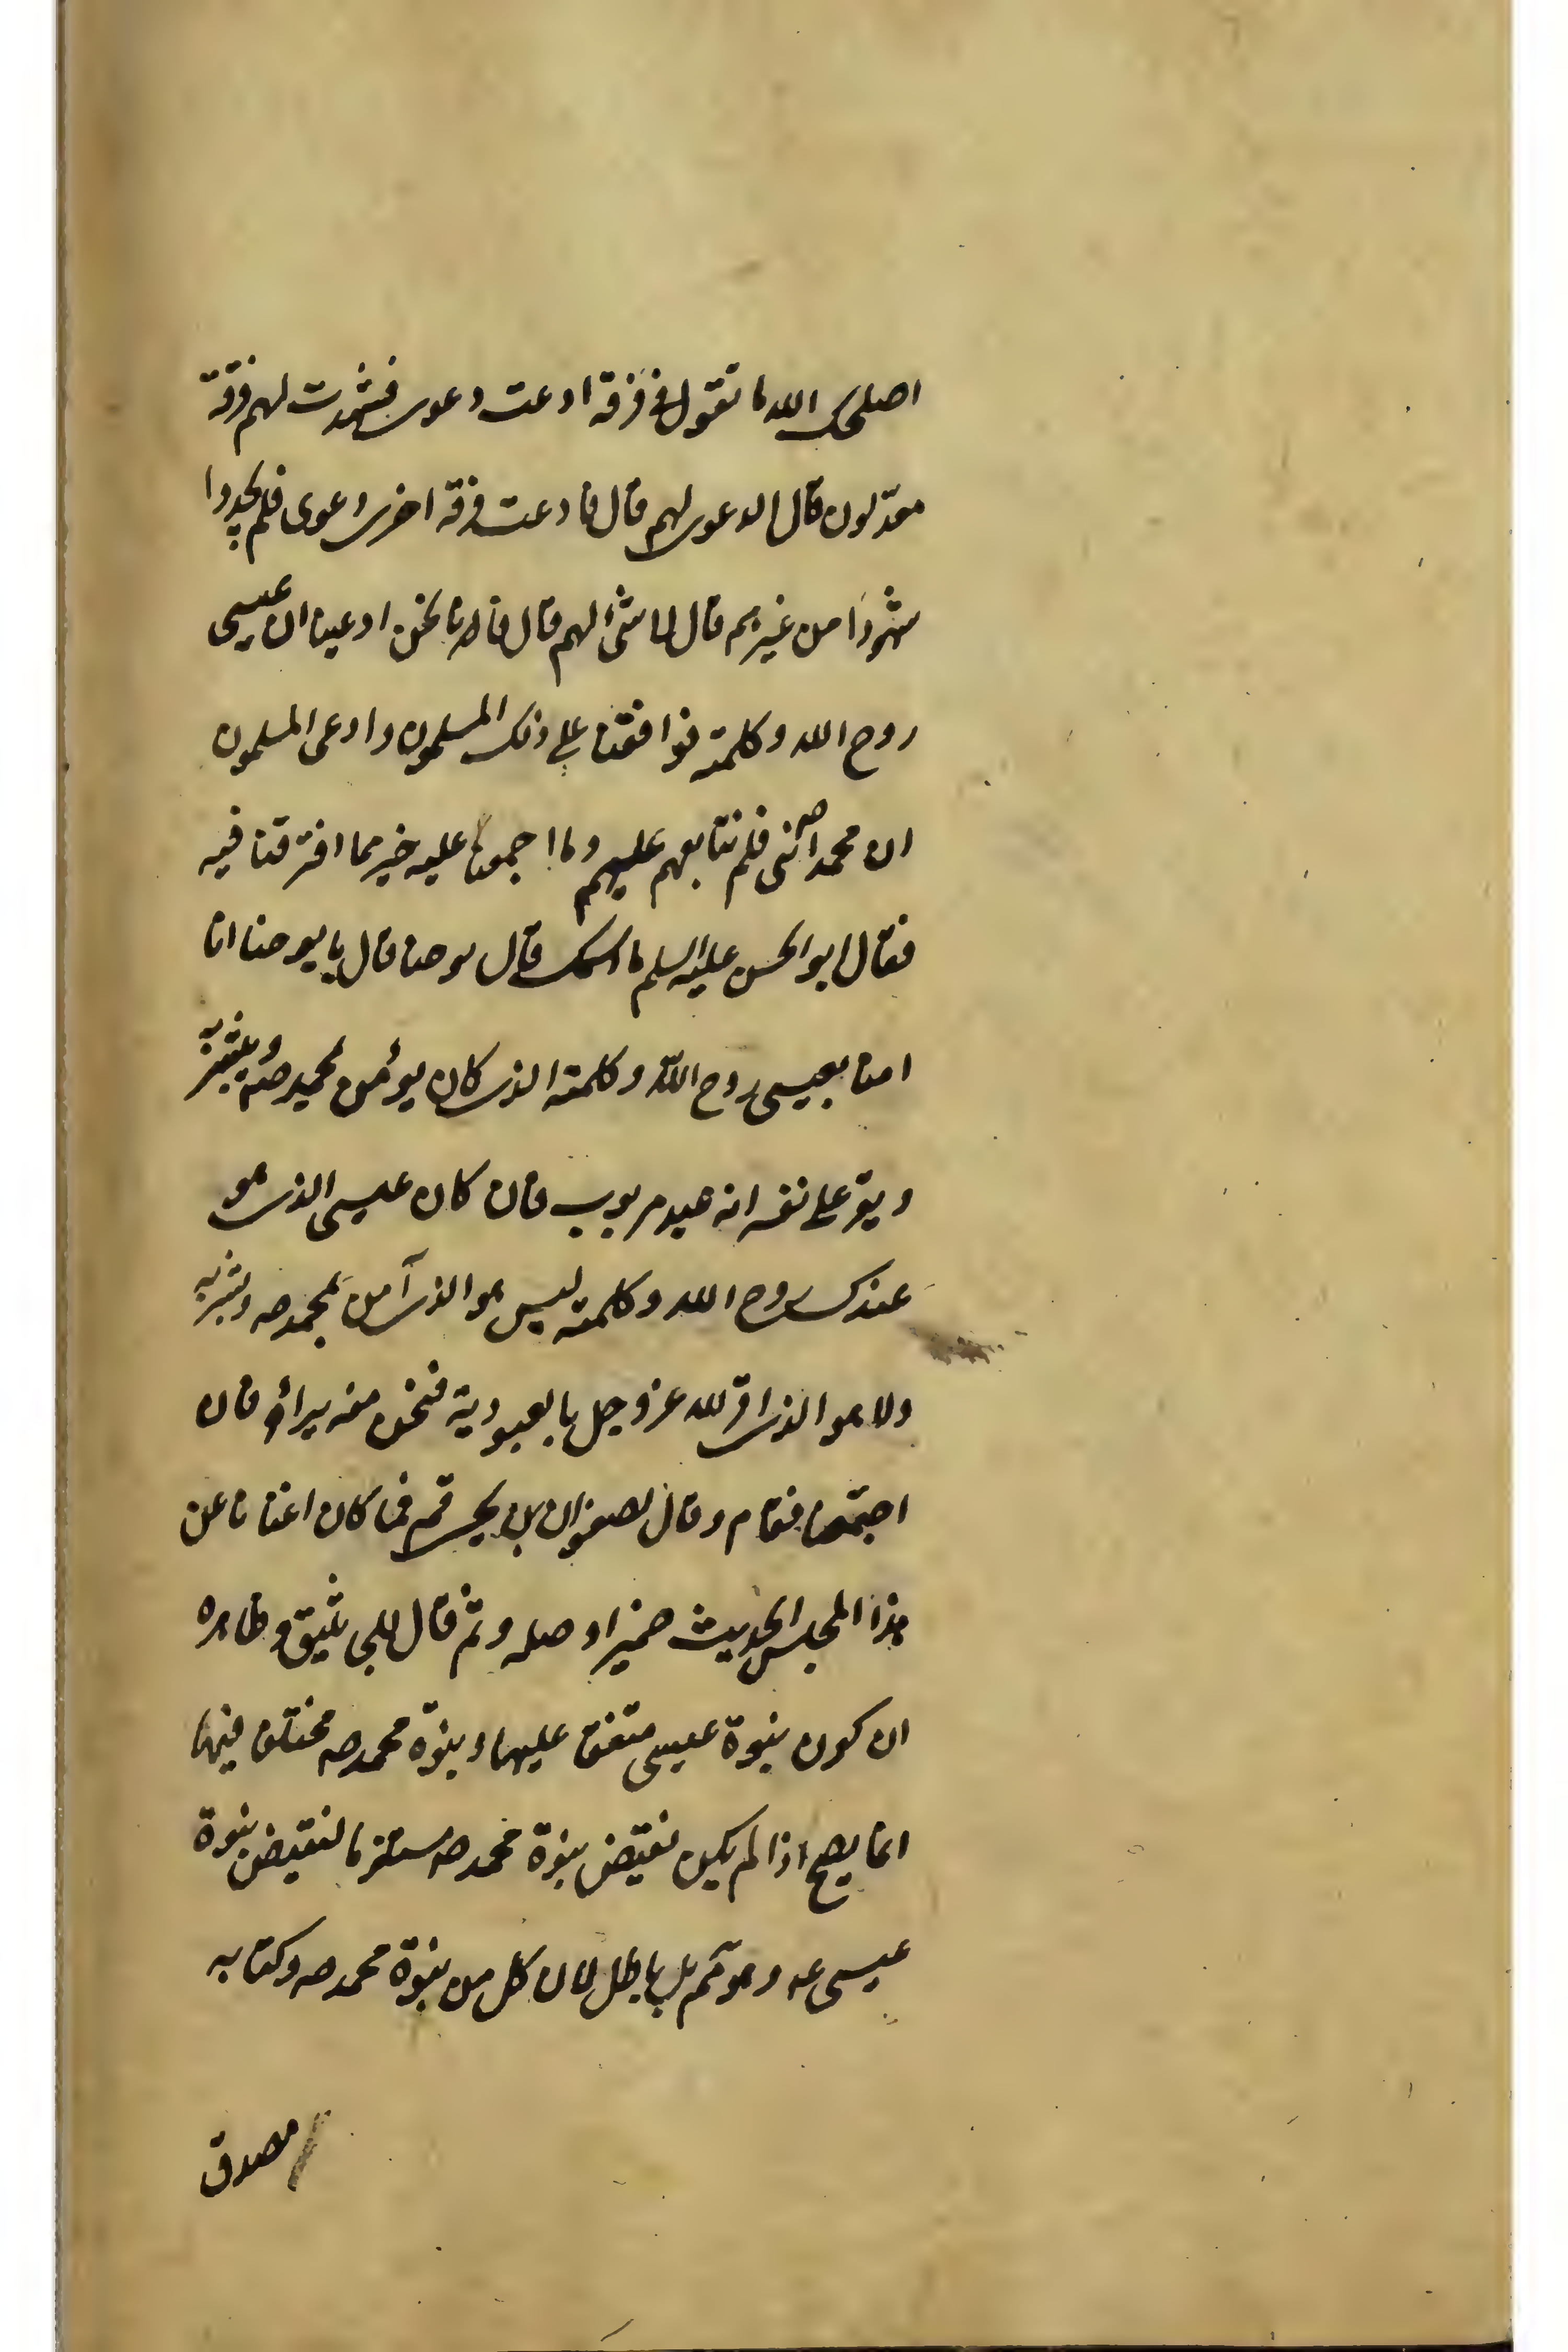 اصلحك الله ما تقول فى فرقة ادعت دعوى فشهدت لهم فرقة
معدّلون قال الدعوى لهم قال فادعت فرقة اخرى دعوى فلم يجدوا
شهودا من غيرهم قال لا شئ لهم قال فانا نحن ادعينا ان عيسى
روح الله وكلمته فوافقنا على ذلك المسلمون وادعى المسلمون
ان محمدا ص نبى فلم نتابعهم عليهم وما اجمعنا عليه خير مما افترقنا فيه
فقال ابو الحسن عليه السلم ما اسمك قال يوحنا قال يا يوحنا انا
امنا بعيسى روح الله وكلمته الذى كان يؤمن بمحمد ص ويبشر به
ويقر على نفسه انه عبد مربوب فان كان عيسى الذى هو
عندك روح الله وكلمته ليس هو الذى آمن بمحمد ص وبشر به
ولا هو الذى اقر لله عز وجل بالعبودية فنحن منه براء فاين
اجتمعنا فقام وقال لصفوان بن يحيى قم فما كان اغنانا عن
هذا المجلس الحديث ضمير او صله و ثم قال للجى ثليق و ظاهره
ان كون نبوة عيسى متفق عليها ونبوة محمد ص مختلف فيها
انما يصح اذا لم يكن نقيض نبوة محمد ص مستلزما لنقيض نبوة
عيسى عه وهو ثم بل باطل لان كل من نبوة محمد ص وكتابه
مصدق